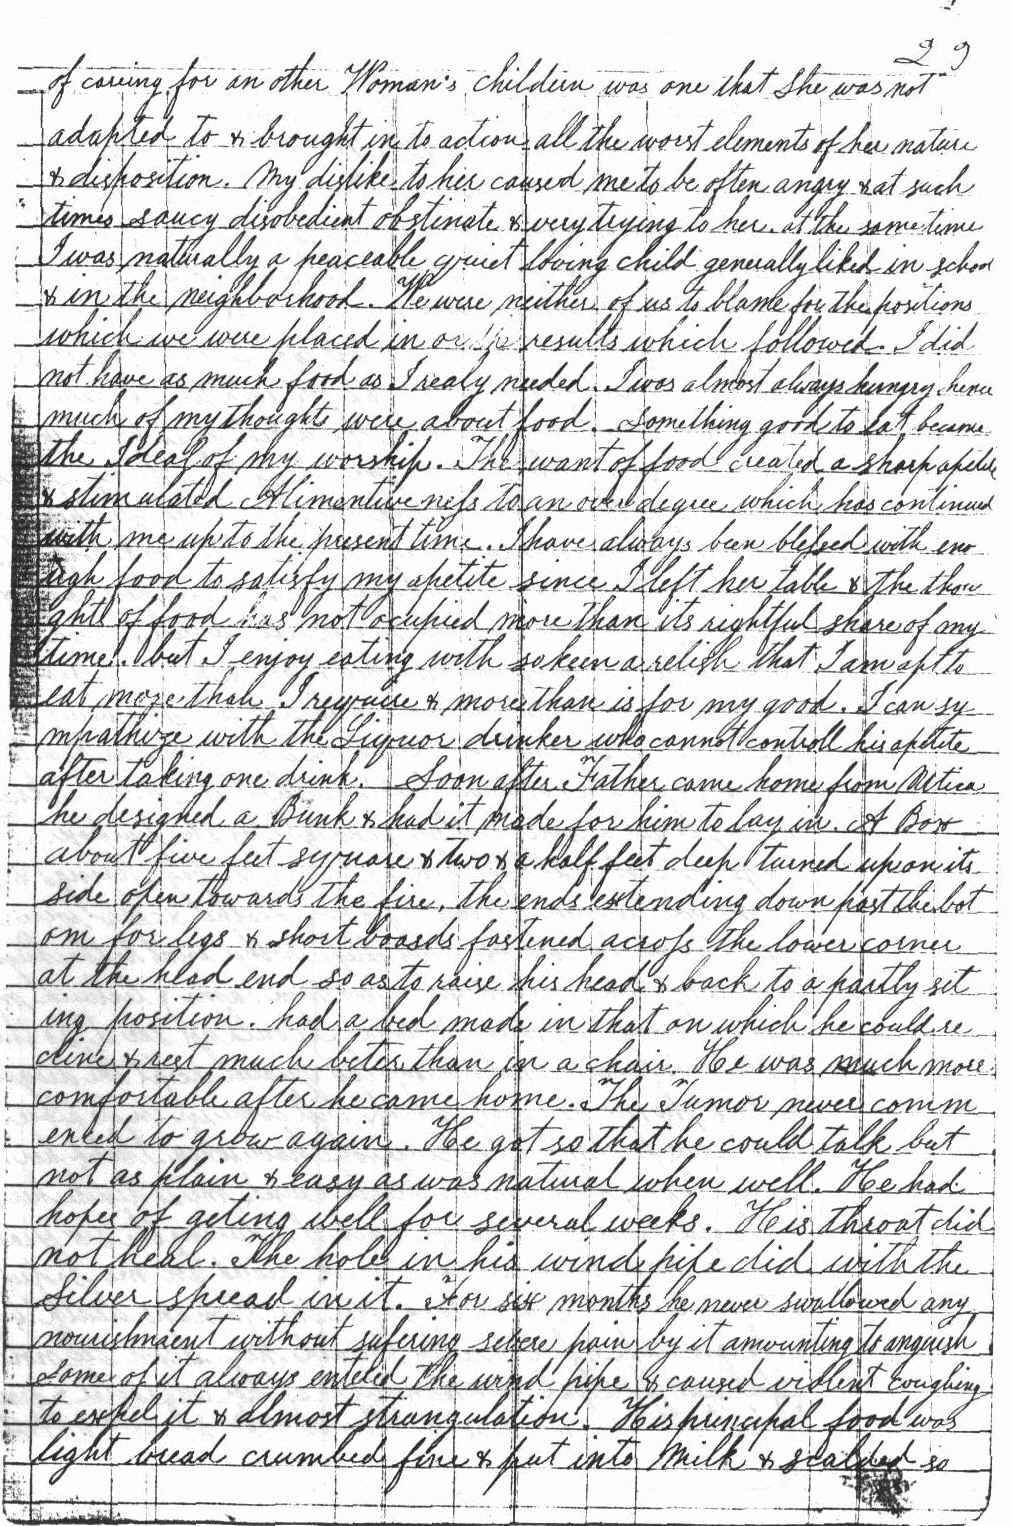 29
of careing for an other Woman's children was one that She was not
adapted to & brought in to action all the worst elements of her nature
& disposition. My dislike to her caused me to be often angry & at such
times saucy disobedient obstinate & very trying to her. at the same time
I was naturally a peaceable quiet loving child generally liked in school
& in the neighborhood. We were neither of us to blame for the positions
which we were placed in or the results which followed. I did
not have as much food as I realy needed. I was almost always hungry hence
much of my thoughts were about food. Something good to Eat became
the Ideal of my worship. The want of food created a sharp apetite
& stimulated Alimentiveness to an over degree which has continued
with me up to the present time. I have always been blessed with eno
ugh food to satisfy my apetite since I left her table & the thou
ght of food has not ocupied more than its rightful share of my
time. but I enjoy eating with so keen a relish that I am apt to
eat more than I require & more than is for my good. I can sy
mpathize with the Liquor drinker who cannot controll his apetite
after taking one drink. Soon after Father came home from Utica
he designed a Bunk & had it made for him to lay in. A Box
about five feet square & two & a half feet deep turned up on its
side open towards the fire, the ends extending down past the bot
om for legs & short boards fastened across the lower corner
at the head end so as to raise his head & back to a partly sit
ing position. had a bed made in that on which he could re
cline & rest much beter than in a chair. He was much more
comfortable after he came home. The Tumor never comm
enced to grow again. He got so that he could talk but
not as plain & easy as was natural when well. He had
hopes of geting well for several weeks. His throat did
not heal. The hole in his wind pipe did with the
Silver spread in it. For six months he never swallowed any
nourishment without sufering severe pain by it amounting to anguish
Some of it always enteled the wind pipe & caused violent coughing
to expel it & almost strangulation. His principal food was
light bread crumbed fine & put into Milk & scalded so